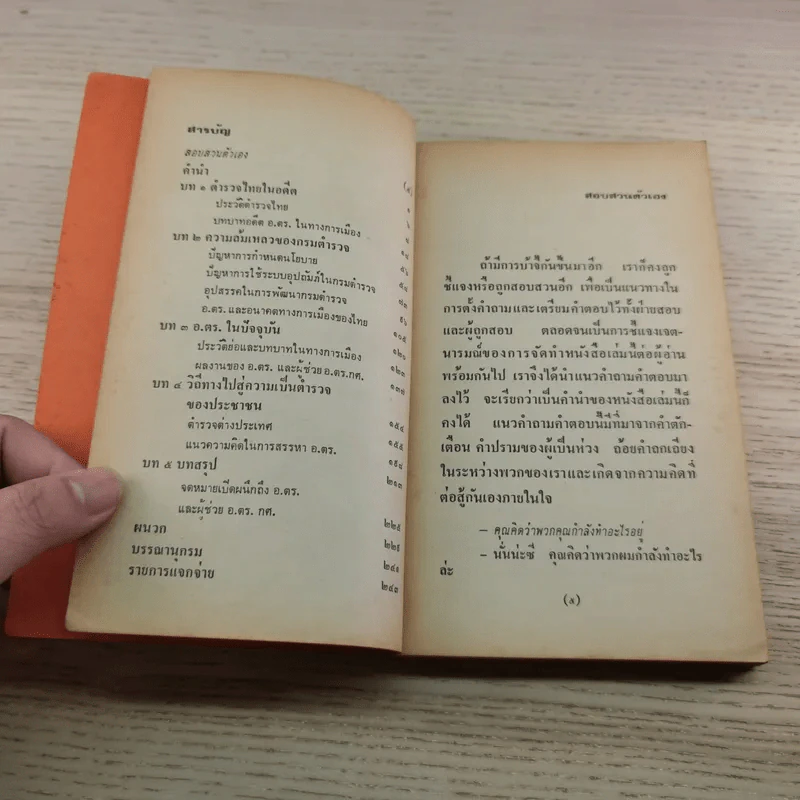 สารบัญ
สอบสวนตัวเอง
คำนำ
บท ๑ ตำรวจไทยในอดีต
ประวัติตำรวจไทย ๑
บทบาทอดีต อ.ตร. ในทางการเมือง
บท ๒ ความล้มเหลวของกรมตำรวจ
ปัญหาการกำหนดนโยบาย
ปัญหาการใช้ระบบอุปถัมภ์ในกรมตำรวจ
อุปสรรคในการพัฒนากรมตำรวจ
อ.ตร. และอนาคตทางการเมืองของไทย
บท ๓ อ.ตร. ในปัจจุบัน ๑๐๕
ประวัติย่อและบทบาทในทางการเมือง ๑๒๐
ผลงานของ อ.ตร. และผู้ช่วย อ.ตร.กศ. ๑๒๓
บท ๔ วิถีทางไปสู่ความเป็นตำรวจ
ของประชาชน
ตำรวจต่างประเทศ ๑๕๔
แนวความคิดในการสรรหา อ.ตร. ๑๕๕
บท ๕ บทสรุป ๑๙๔
จดหมายเปิดผนึกถึง อ.ตร. ๒๑๓
และผู้ช่วย อ.ตร. กศ.
ผนวก ๒๒๕
บรรณานุกรม ๒๒๙
รายการแจกจ่าย ๒๔๑
๒๔๓
สอบสวนตัวเอง
ถ้ามีการบ้าจี้กันขึ้นมาอีก เราก็คงถูก
ชี้แจงหรือถูกสอบสวนอีก เพื่อเป็นแนวทางใน
การตั้งคำถามและเตรียมคำตอบไว้ทั้งฝ่ายสอบ
และผู้ถูกสอบ ตลอดจนเป็นการชี้แจงเจต-
นารมณ์ของการจัดทำหนังสือเล่มนี้ต่อผู้อ่าน
พร้อมกันไป เราจึงได้นำแนวคำถามคำตอบมา
ลงไว้ จะเรียกว่าเป็นคำนำของหนังสือเล่มนี้ก็
คงได้ แนวคำถามคำตอบนี้มีที่มาจากคำตัก-
เตือน คำปรามของผู้เป็นห่วง ถ้อยคำถกเถียง
ในระหว่างพวกของเราและเกิดจากความคิดที่
ต่อสู้กันเองภายในใจ
– คุณคิดว่าพวกคุณกำลังทำอะไรอยู่
– นั่นน่ะซี คุณคิดว่าพวกผมกำลังทำอะไร
ล่ะ
(๕)